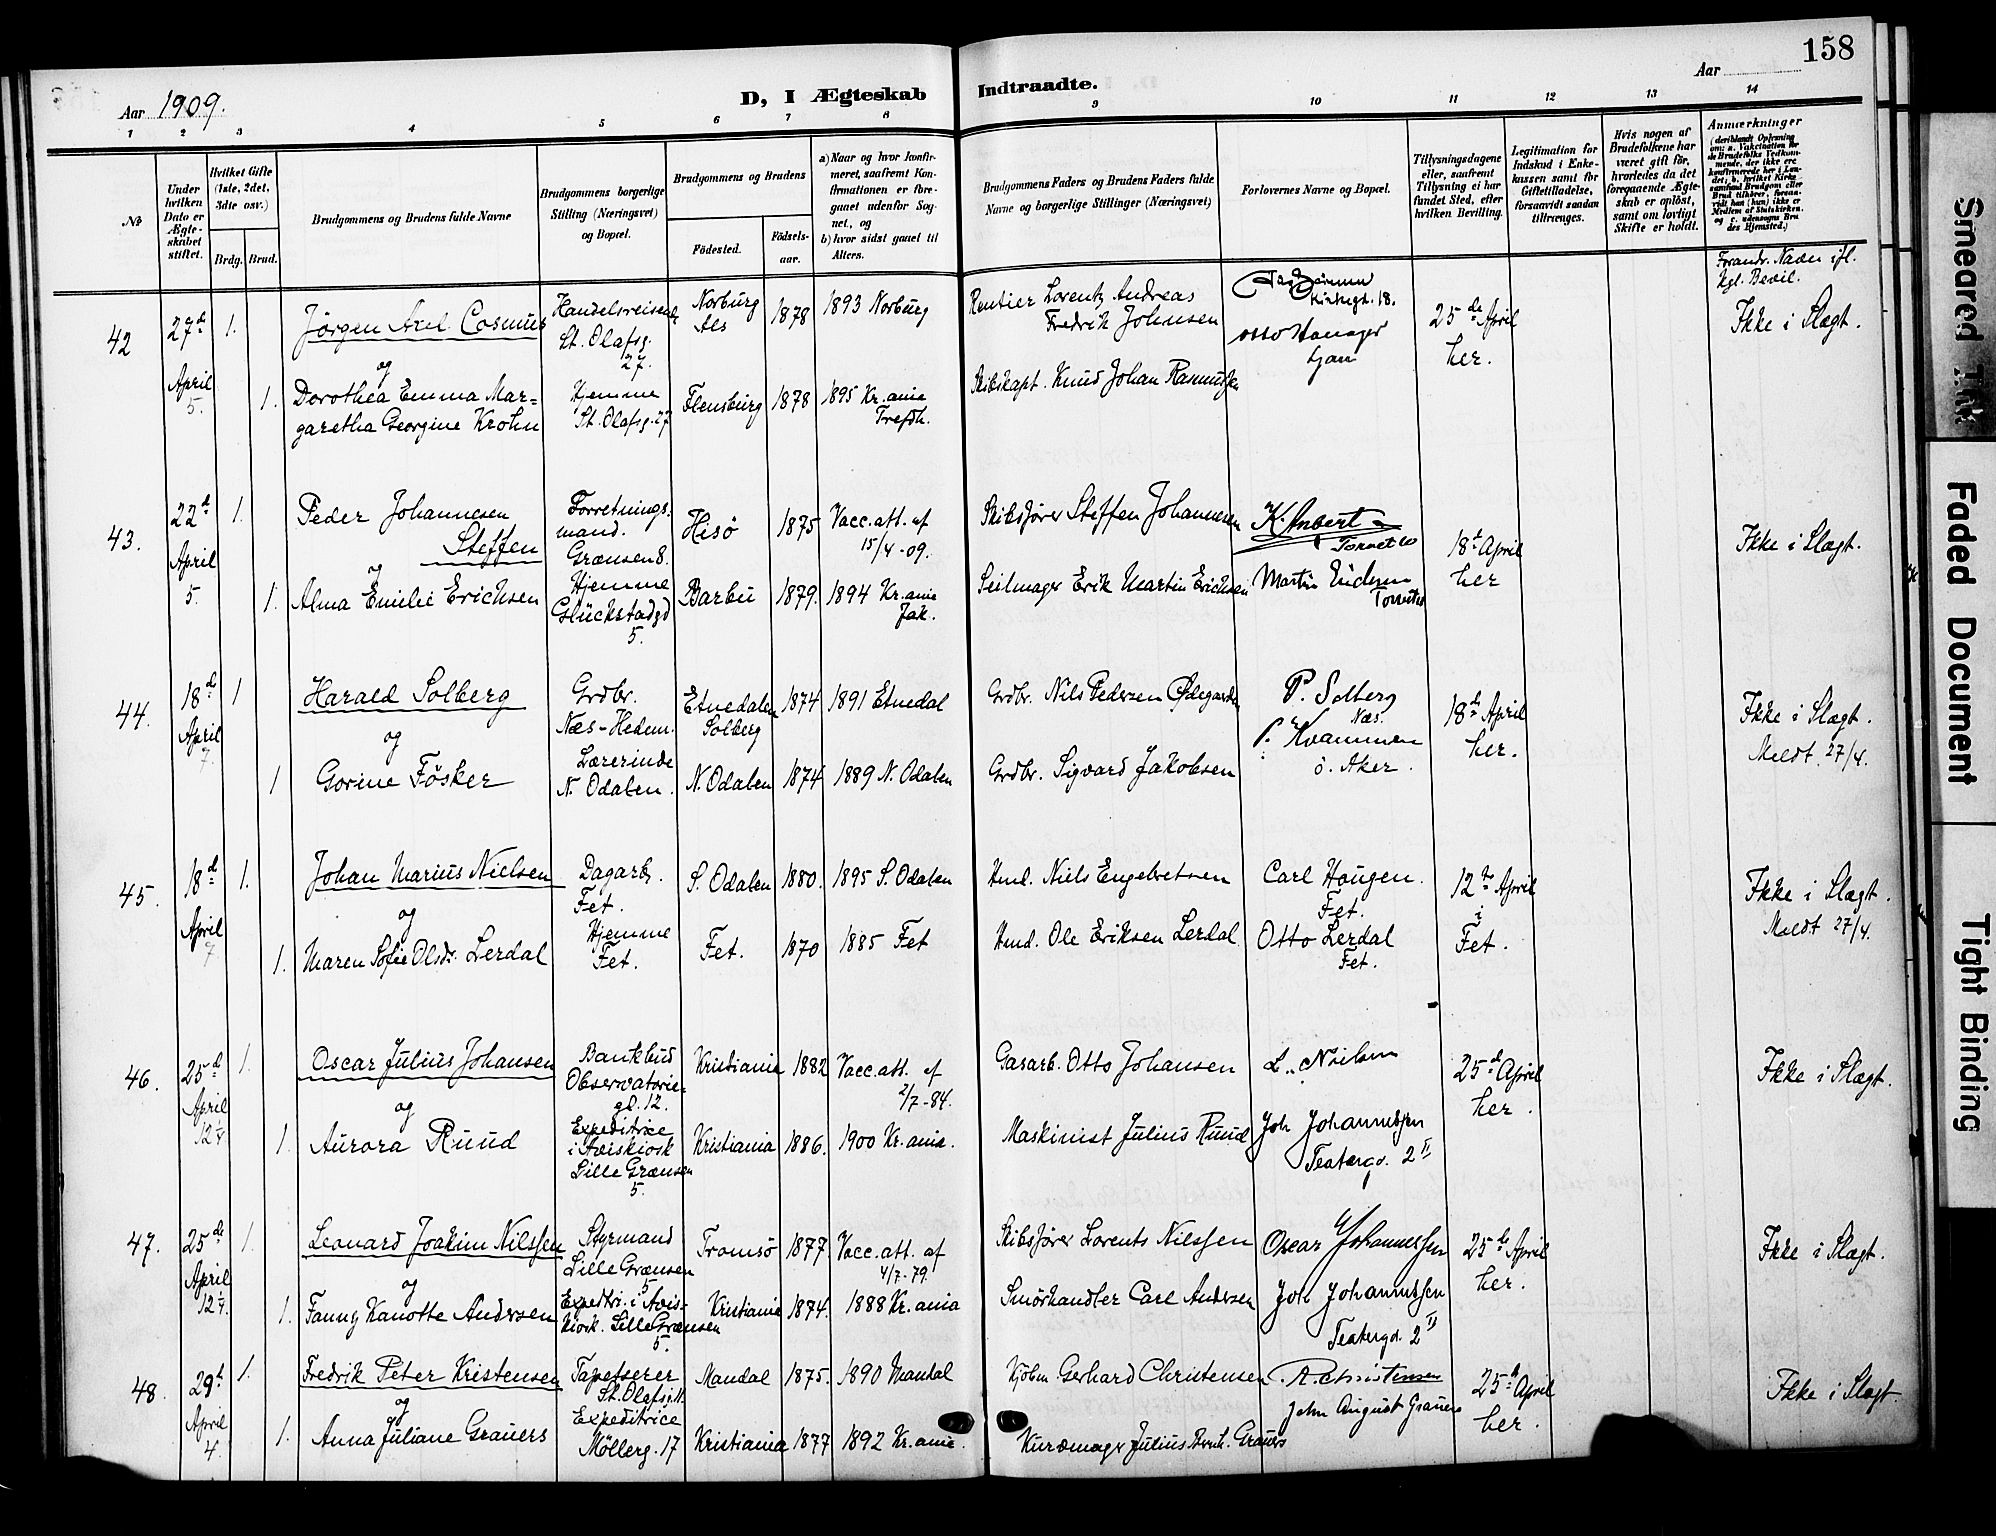 158
Aar 1909.
D, I Ægteskab Indtraadte.
Aar
1 2 3 4 5 6 7 8 9 10 11 12 13 14
№
Under hvilken Dato er Ægteskabet stiftet.
Hvilket Gifte (1ste, 2det, 3die osv.)
Brdg. Brud.
Brudgommens og Brudens fulde Navne
Brudgommens borgerlige Stilling (Næringsvei) og Bopæl.
Brudgommens og Brudens
Födested.
Födselsaar.
a) Naar og hvor konfirmeret, saafremt Konfirmationen er foregaaet udenfor Sognet, og
b) hvor sidst gaaet til Alters.
Brudgommens Faders og Brudens Faders fulde Navne og borgerlige Stillinger (Næringsvei)
Forlovernes Navne og Bopæl.
Tillysningsdagene eller, saafremt Tillysning ei har fundet Sted, efter hvilken Bevilling.
Legitimation for Indskud i Enkekassen samt for Giftetilladelse, forsaavidt saadan tiltrænges.
Hvis nogen af Brudefolkene har været gift för, hvorledes da det foregaaende Ægteskab er oplöst, samt om lovligt Skifte er holdt.
Anmærkninger
Forandr. Navn ifl.
Kgl. Bevil.
42 27de April 5. 1.
Jörgen Axel Cosmus
Handelsreisende
St. Olafsg. 27.
Norburg Als
1878
1893 Norburg
Rentier Lorentz Andreas
Fredrik Johnsen
Kirkegt. 18.
25de April her.
Ikke i Slægt.
og
1. Dorothea Emma Mar=
garetha Georgine Krohn
Hjemme
St. Olafsg. 27
Flensburg
1878
1895 Kr.ania
Trefdh.
Skibskapt. Knud Johan Rasmussen
43. 22d April 5. 1.
Peder Johannesen
Steffen
Forretnings-
mand.
Grænsen 8.
Hisö
1875
Vacc. att. af
15/4-09.
Skibsfører Steffen Johannesen
18de April her
Ikke i Slægt.
og
1. Alma Emilie Erichsen
Hjemme
Glückstadgd
5.
Barbu
1879.
1894 Kr.ania
Jak.
Seilmager Erik Martin Erichsen
44. 18d April 7. 1
Harald Solberg
Grdbr.
Næs-Hedem.
Etnedalen
Solberg
1874
1891 Etnedal
Grdbr. Nils Pedersen Ødegarden
P. Solberg
Næs.
18de April her.
Ikke i Slægt.
Meldt. 27/4.
og
1 Gorine Fösker
Lærerinde
N. Odalen.
N. Odalen
1874
1889 N. Odalen
Grdbr. Sigvard Jakobsen
P. Kvammen
ö. Aker.
45. 18d April 7 1.
Johan Marius Nielsen
Dagarb.
Fet.
S. Odalen
1880.
1895 S. Odalen
Hmd. Niels Engebretsen
Carl Haugen.
Fet.
12te April i Fet.
Ikke i Slægt.
Meldt 27/4.
og
1. Maren Sofie Olsdr. Lerdal
Hjemme
Fet.
Fet.
1870
1885 Fet
Hmd. Ole Eriksen Lerdal
Otto Lerdal
Fet.
46. 25d April 12¼ 1.
Oscar Julius Johansen
Bankbud
Observatorie-
gd. 12.
Kristiania
1882
Vacc. att. af
2/7-84.
Gasarb. Otto Johansen
L. Nielsen
25d April her.
Ikke i Slægt.
og
1. Aurora Ruud
Expeditrice
i Aviskiosk
Lille Grænsen
5.
Kristiania
1886.
1900 Kr.ania.
Maskinist Julius Ruud
Joh Johannessen
Teatergd. 2 II
47. 25de April 12¼. 1.
Leonard Joakim Nilssen
Styrmand
Lille Grænsen
5
Tromsö
1877.
Vacc. att. af
4/7-79.
Skibsfører Lorents Nilssen
Oscar Johannessen
25de April her.
Ikke i Slægt.
og
1. Fanny Kanotte Andersen
Expeditr. i Avis-
kiosk. Lille Grænsen
5.
Kristiania
1874.
1888 Kr.ania
Smörhandler Carl Andersen
Joh Johannessen
Teatergd. 2 II
48. 29d April 4. 1.
Fredrik Peter Kristensen
Tapetserer
Mandal
1875.
1890 Mandal
Kjøbm Gerhard Christensen
25de April her.
Ikke i Slægt.
og
1. Anna Juliane Grauers
Expeditrice
Möllerg. 17
Kristiania
1877
1892 Kr.ania.
Kurvmager Julius Bernh. Grauers
John August Grauers
Smeared Ink
Faded Document
Tight Binding